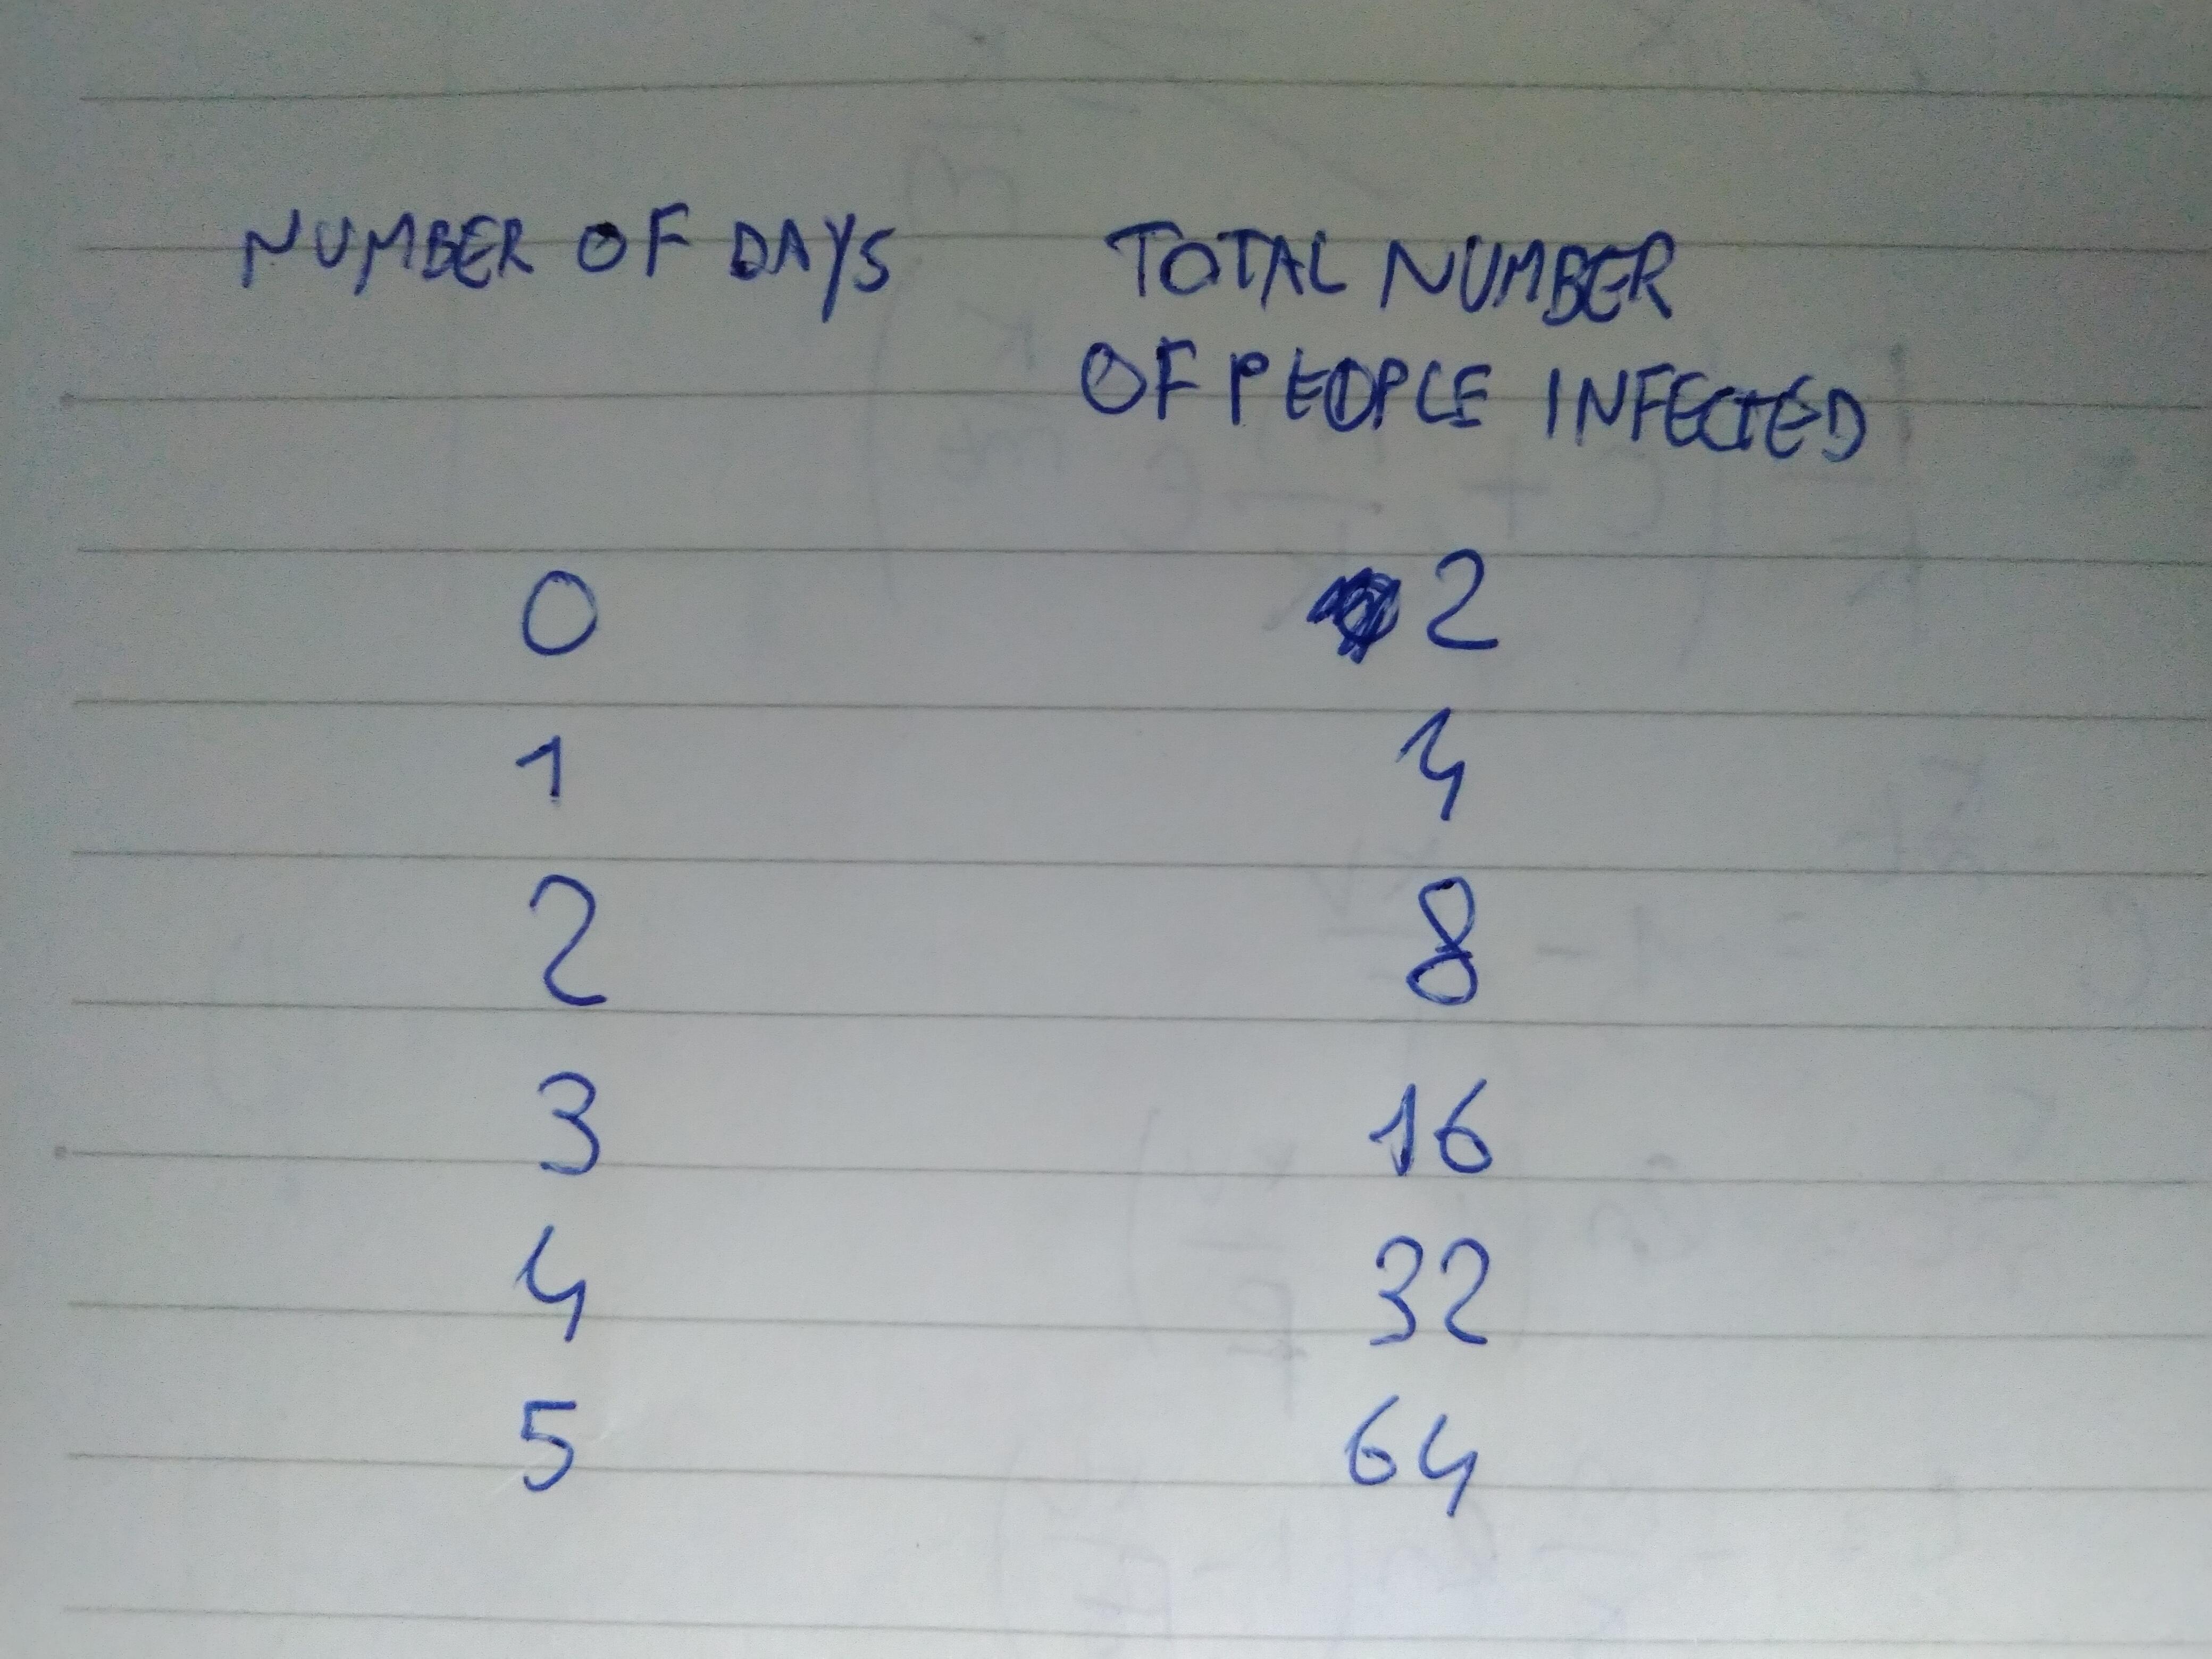 NUMBER OF DAYS TOTAL NUMBER
OF PEOPLE INFECTED
0 2
1 4
2 8
3 16
4 32
5 64